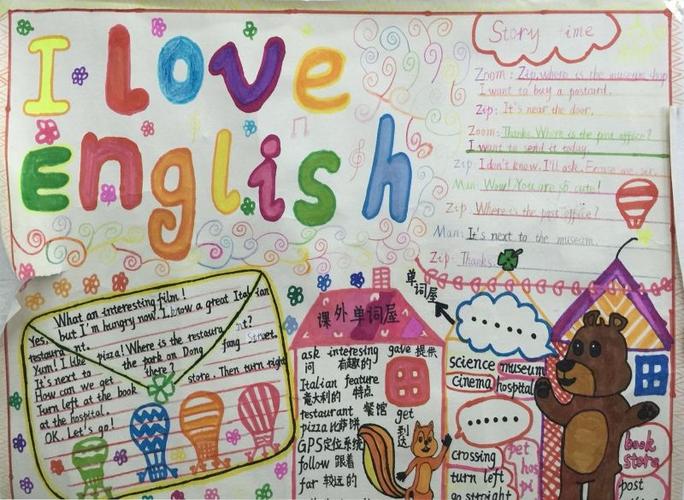 I Love
English
Story time
Zoom: Zip, where is the museum shop
I want to buy a postcard.
Zip: It's near the door.
Zoom: Thanks. Where is the post office?
I want to send it today.
Zip I don't know. I'll ask. me, sir.
Man: Wow! You are so cute!
Zip: Where is the post office?
Man: It's next to the museum.
Zip: Thanks.
What an interesting film!
Yes, but I'm hungry now. I know a great Italian
restaurant.
Yum! I like piza! Where is the restaurant?
It's next to the park on Dong fang Street.
How can we get there?
Turn left at the book store. Then turn right
at the hospital.
OK. Let's go!
课外单词屋
ask interesing gave 提供
问 有趣的
Italian feature
意大利的 特点
restaurant 餐馆
pizza 比萨饼 get
GPS定位系统 到达
follow 跟着
far 较远的
单词屋
science museum
cinema hospital
crossing
turn left
go straight
pet
hos
pi
book
store
post